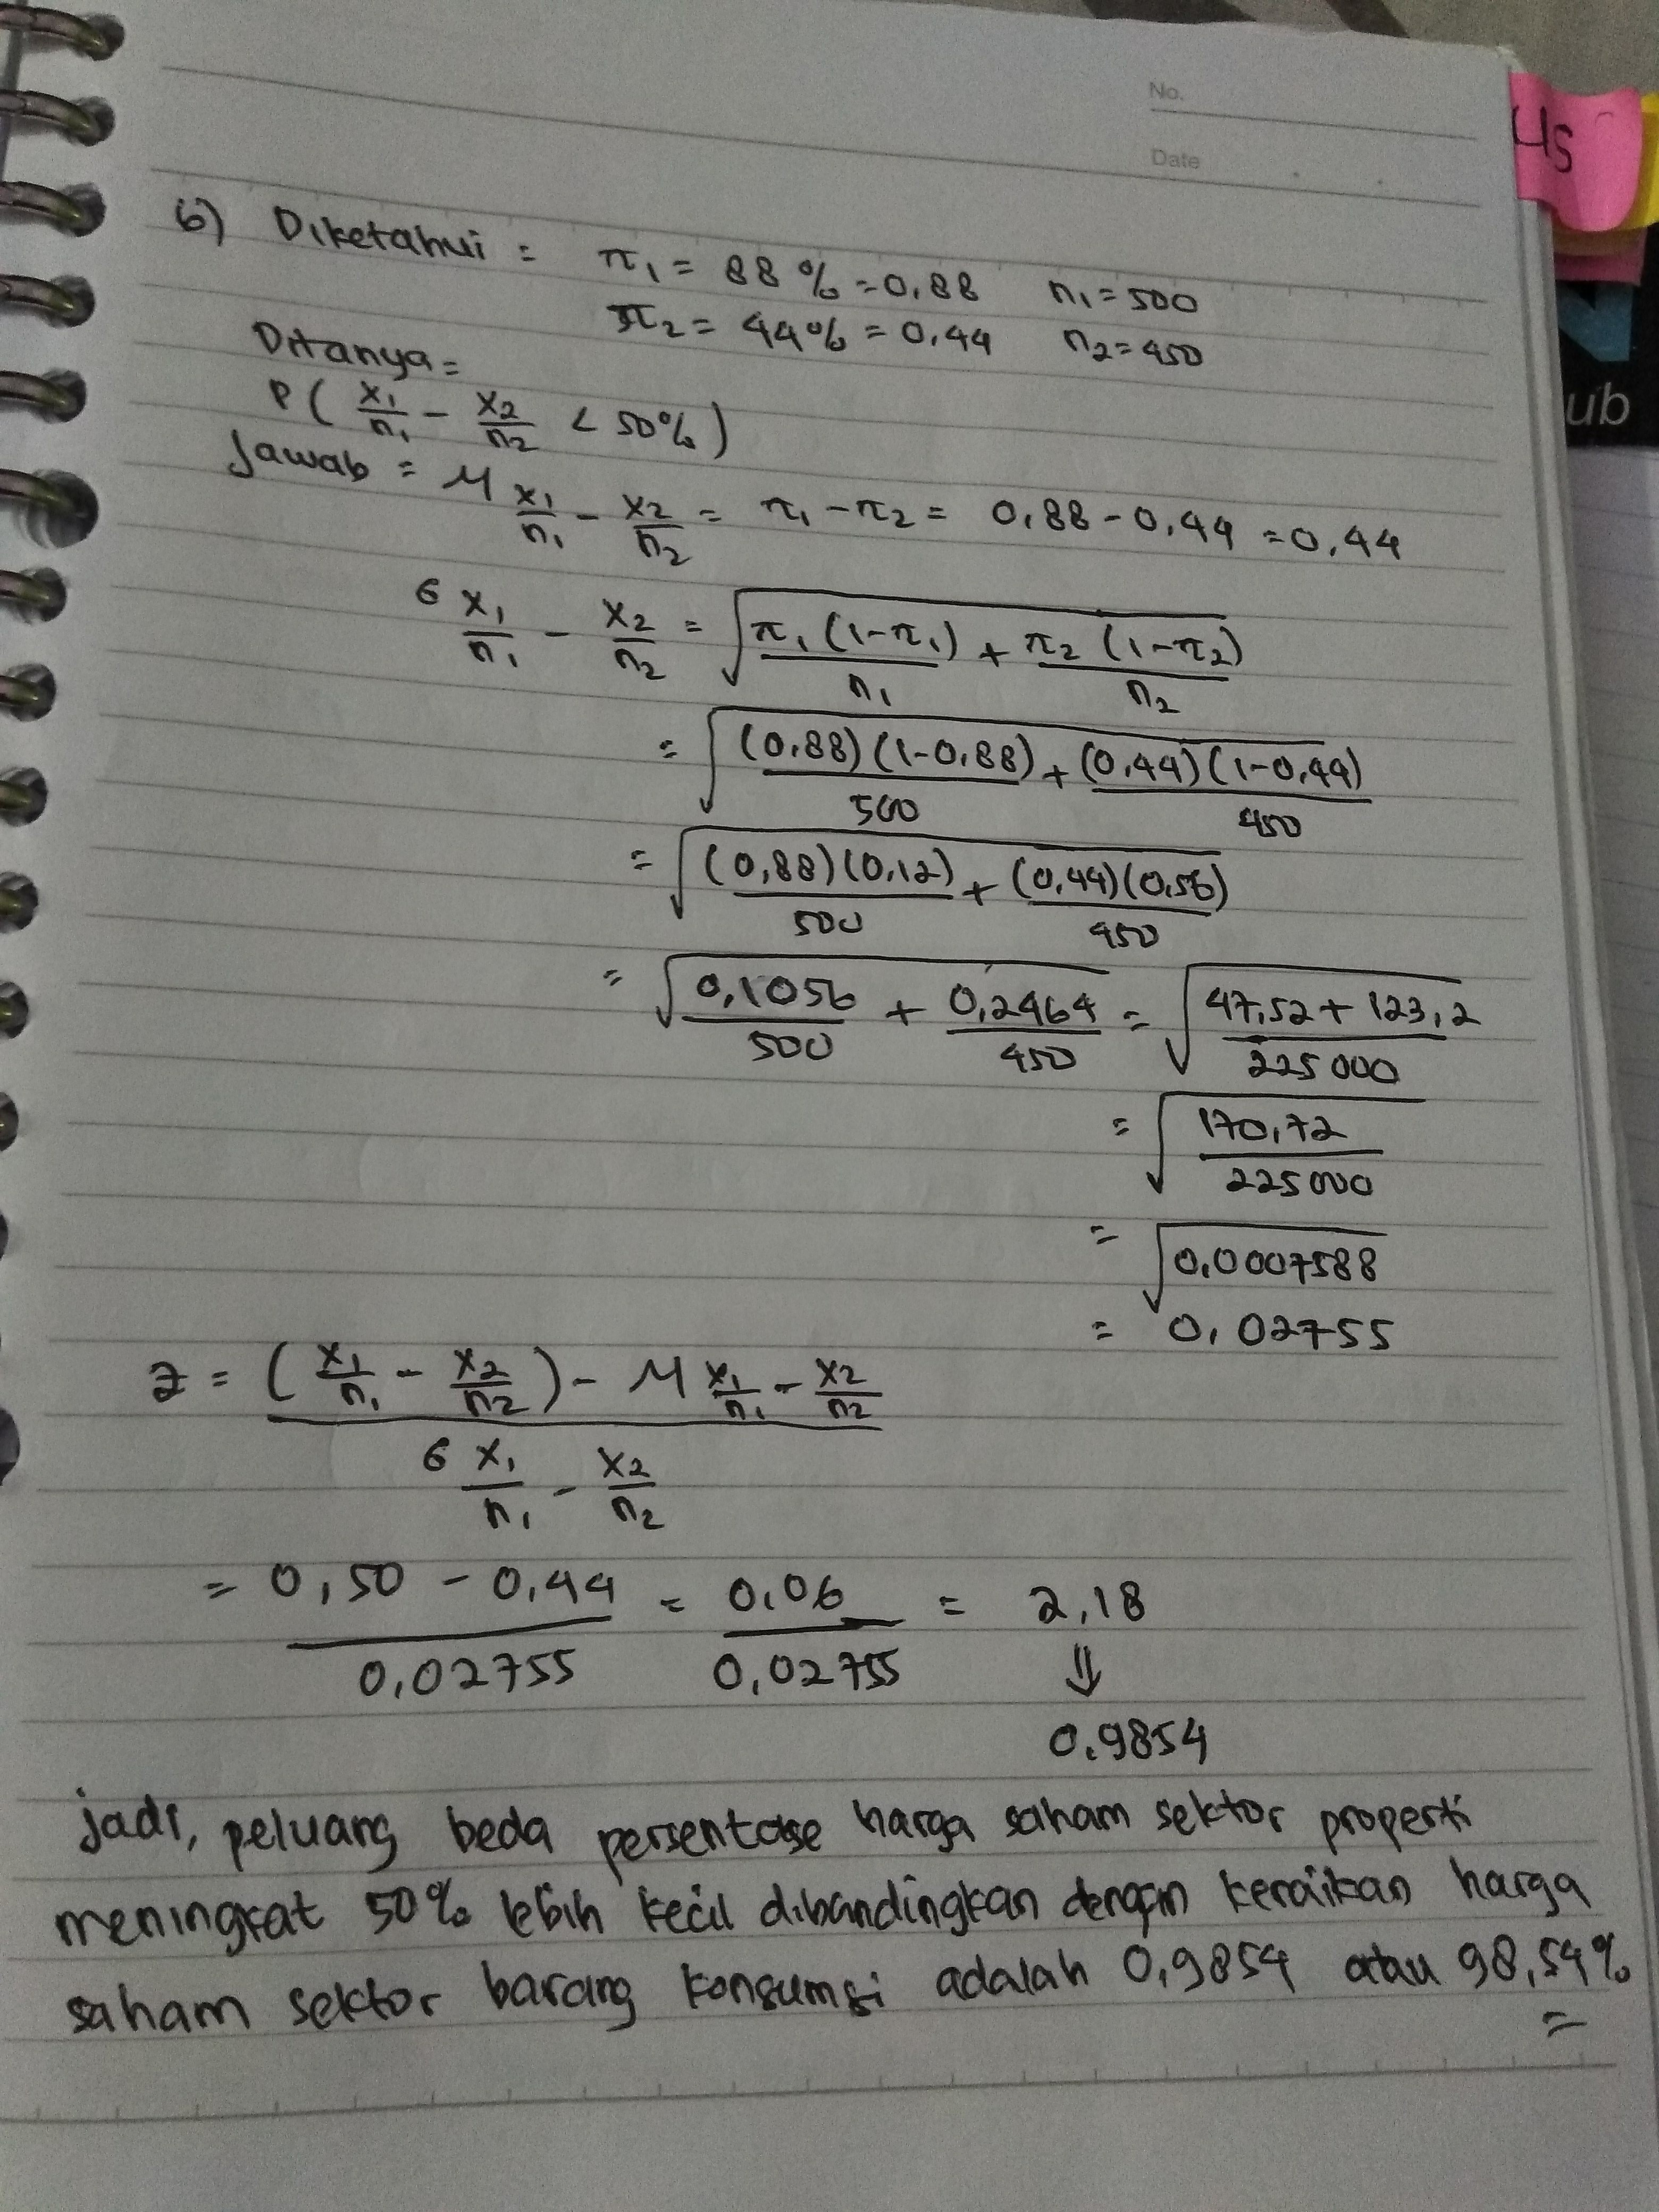 No.
Date
HS
ub
6) Diketahui = π₁ = 88 % = 0,88 n₁ = 500
π₂ = 44% = 0,44 n₂ = 450
Ditanya =
P ( X₁/n₁ - X₂/n₂ < 50% )
Jawab = M X₁/n₁ - X₂/n₂ = π₁ - π₂ = 0,88 - 0,44 = 0,44
6 X₁/n₁ - X₂/n₂ = √(π₁ (1-π₁)/n₁ + π₂ (1-π₂)/n₂)
= √((0,88)(1-0,88)/500 + (0,44)(1-0,44)/450)
= √((0,88)(0,12)/500 + (0,44)(0,56)/450)
= √(0,1056/500 + 0,2464/450) = √(47,52 + 123,2/225000)
= √(170,72/225000)
= √0,0007588
= 0,02755
z = (X₁/n₁ - X₂/n₂) - M X₁/n₁ - X₂/n₂ / 6 X₁/n₁ - X₂/n₂
= 0,50 - 0,44/0,02755 = 0,06/0,02755 = 2,18
⇓
0.9854
jadi, peluang beda persentase harga saham sektor properti
meningkat 50% lebih kecil dibandingkan dengan kenaikan harga
saham sektor barang konsumsi adalah 0,9854 atau 98,54%